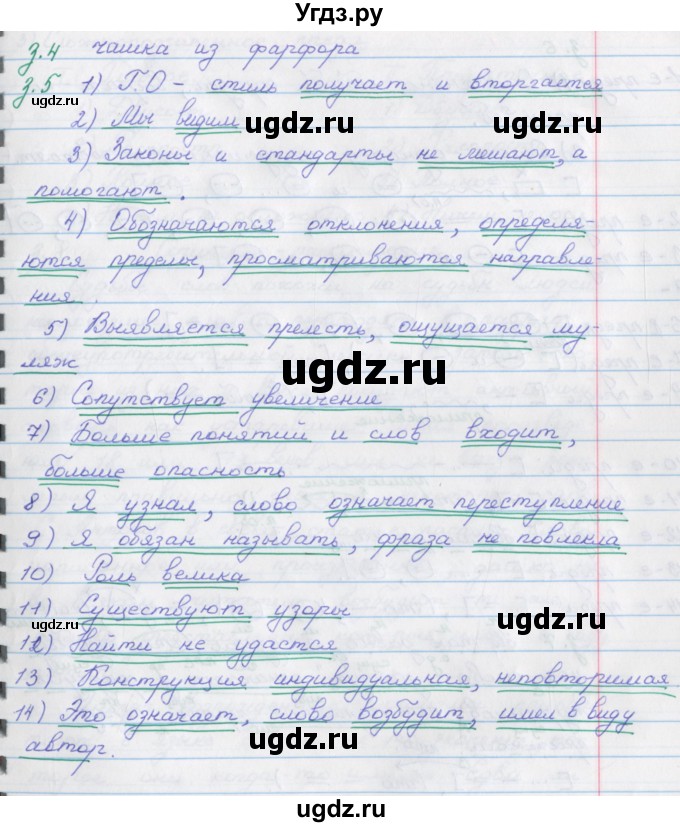 Угдз.ру
з.4 чашка из фарфора
з.5 1) Г.О - стиль получает и вторгается
ugdz.ru
2) Мы видим ugdz.ru ugdz.ru
3) Законы и стандарты не мешают, а
помогают.
ugdz.ru
4) Обозначаются отклонения, определя-
ются пределы, просматриваются направле-
ния.
5) Выявляется прелесть, ощущается му-
ляж
ugdz.ru
6) Сопутствует увеличение
7) Больше понятий и слов входит,
ugdz.ru
больше опасность
8) Я узнал, слово означает переступление
ugdz.ru
9) Я обязан называть, фраза не повлекла
10) Роль велика
11) Существуют узоры
ugdz.ru ugdz.ru
12) Найти не удастся
13) Конструкция индивидуальная, неповторимая
14) Это означает, слово возбудит, имел в виду
ugdz.ru
автор. ugdz.ru
ugdz.ru